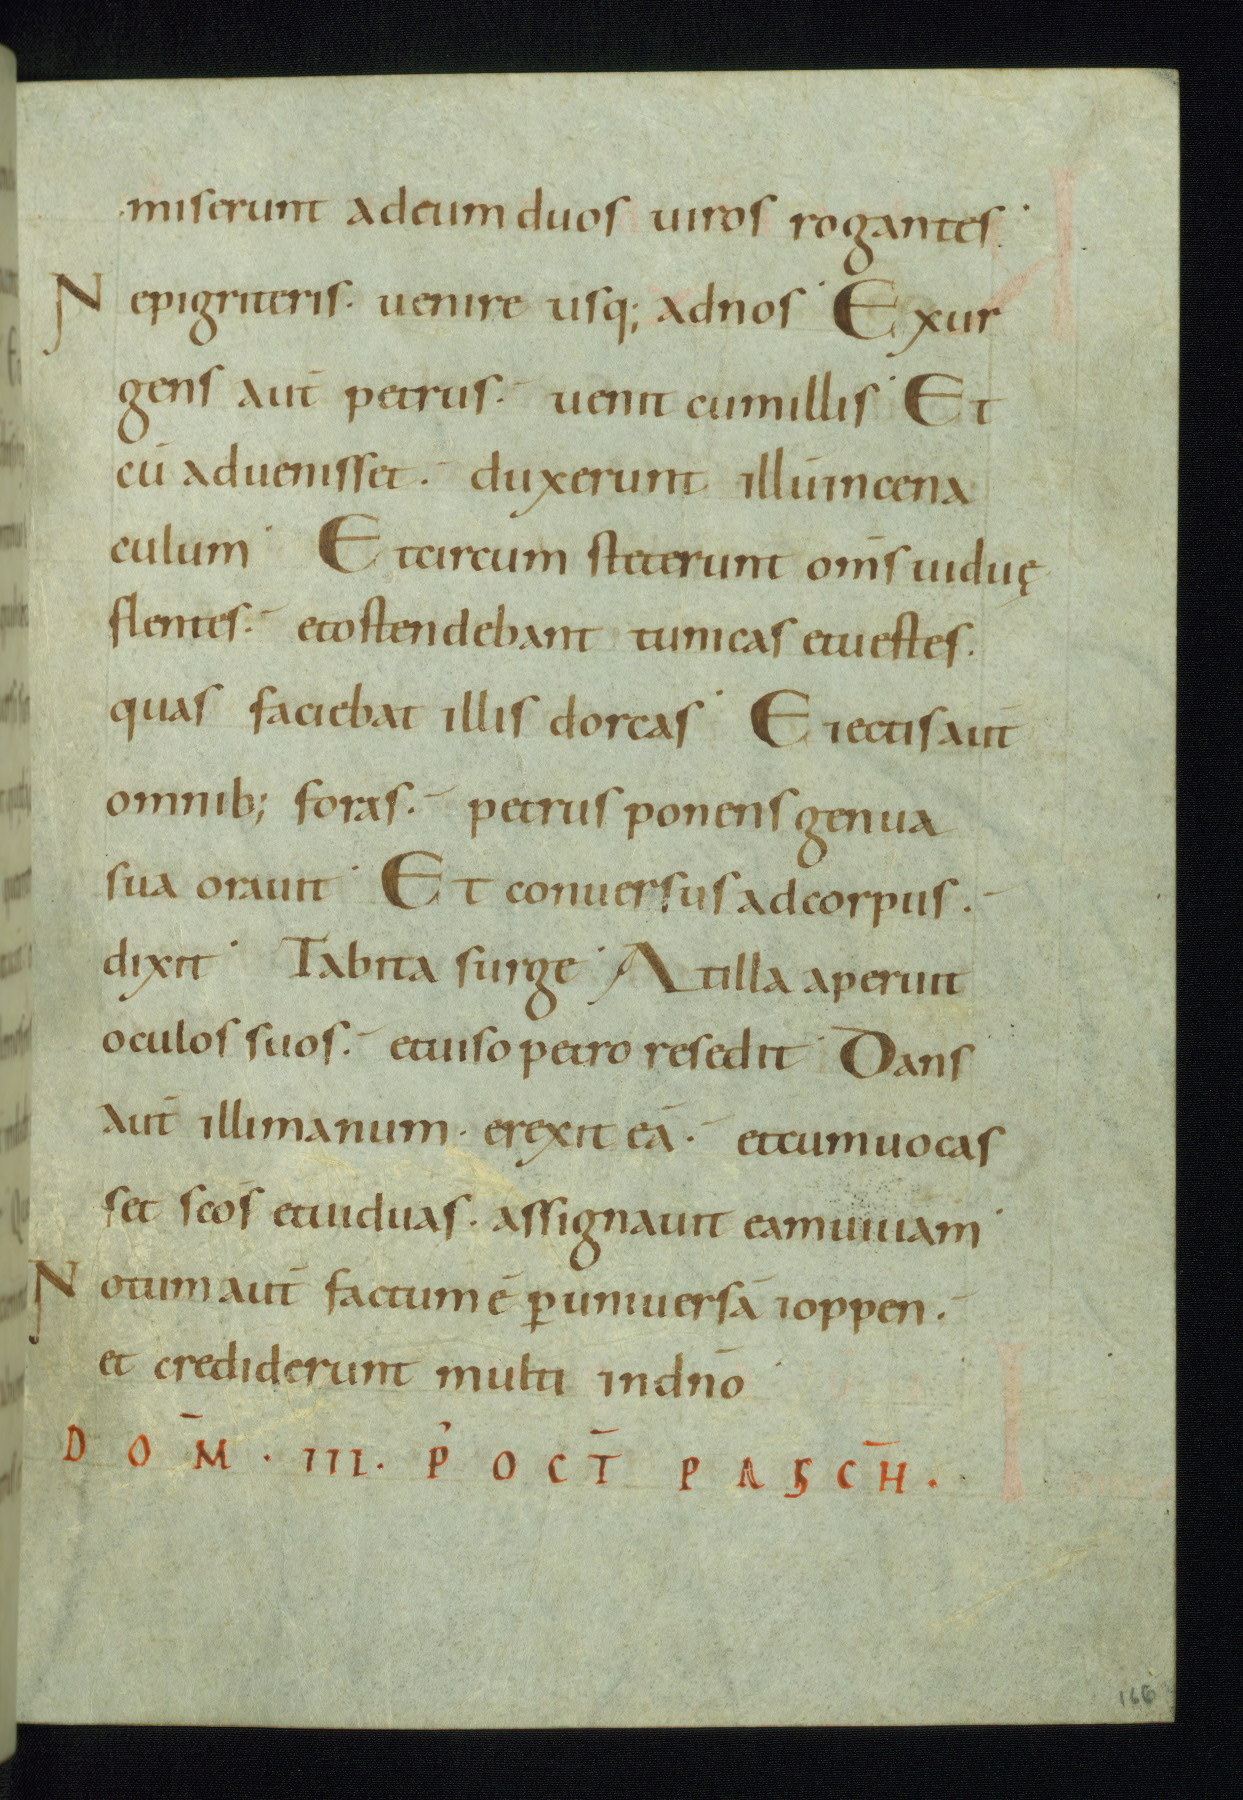 miserunt adeum duos uiros rogantes.
Nepigriteris. uenire usq; adnos. Exur
gens aut̄ petrus. uenit cumillis. Et
cū aduenisset. duxerunt illū incena
culum. Etcircum steterunt om̄s uiduę
flentes. etostendebant tunicas etuestes.
quas faciebat illis dorcas. Eiectisaut̄
omnib; foras. petrus ponens genua
sua orauit. Et conuersus adcorpus.
dixit. Tabita surge. Atilla aperuit
oculos suos. etuiso petro resedit. Dans
aut̄ illimanum. erexit eā. etcumuocas
set sc̄os etuiduas. assignauit eamuiuam.
Notum aut̄ factum ē ꝑuniuersā ioppen.
et crediderunt multi indn̄o
DOM̄. III. P'OCT̄ PASC̄H.
166